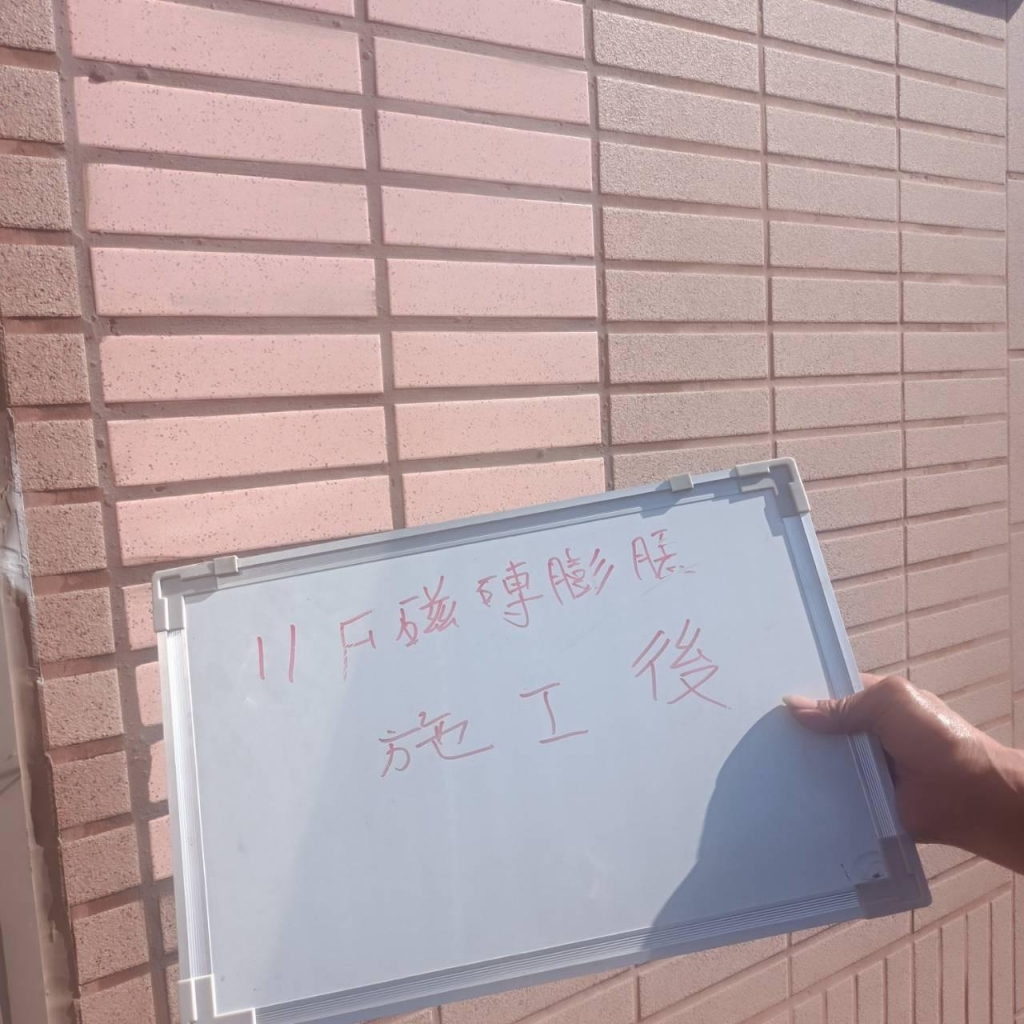 11F磁磚膨脹
施工後